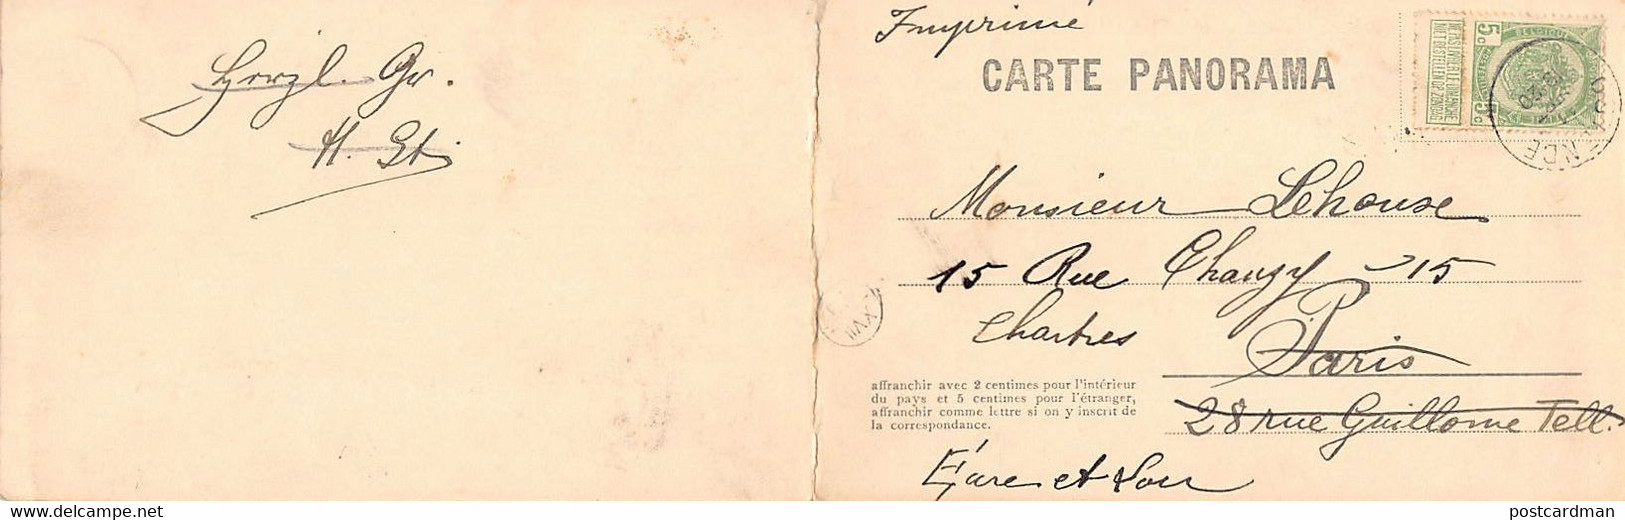 Herzl. Gr.
Imprimé
CARTE PANORAMA
BELGIQUE
5c 5c
NE PAS LIVRER LE DIMANCHE
NIET BESTELLEN OP ZONDAG
Monsieur Lehouse
15 Rue Chanzy 15
Chartres
Paris
affranchir avec 2 centimes pour l'intérieur
du pays et 5 centimes pour l'étranger,
affranchir comme lettre si on y inscrit de
la correspondance.
28 rue Guillome Tell.
Eure et Loir
postcardman